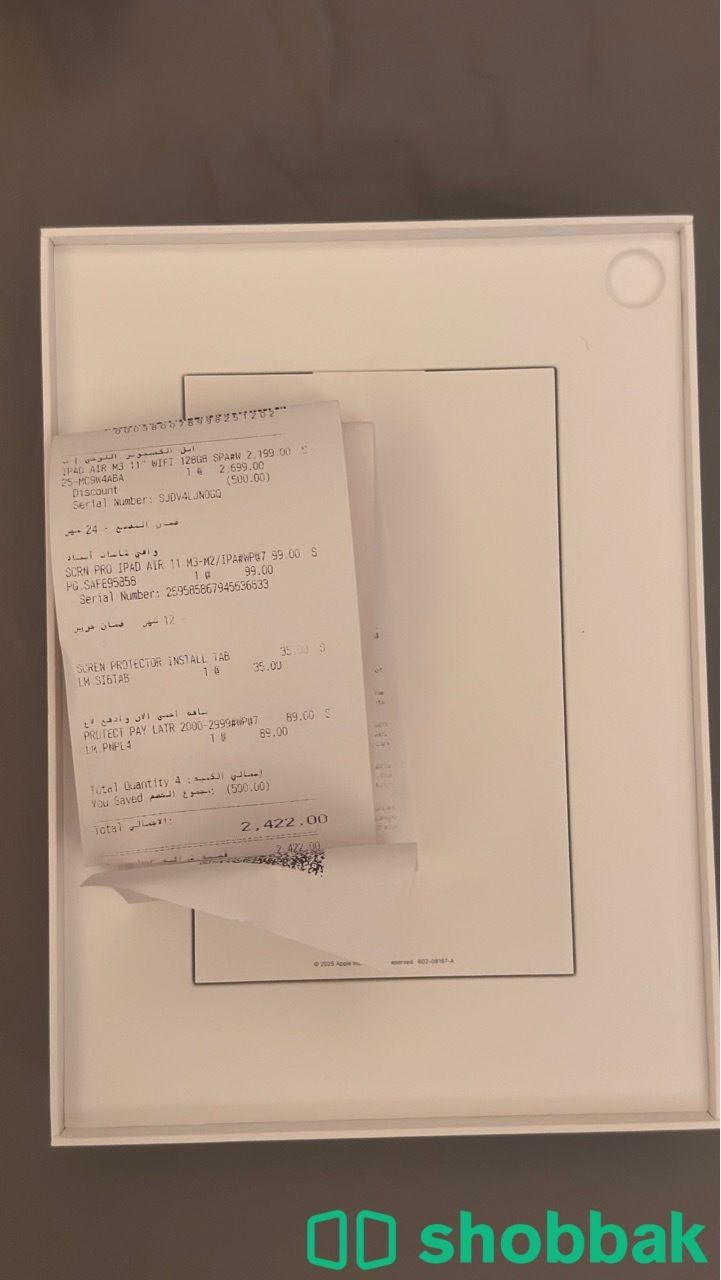 ابل الكمبيوتر اللوحي
IPAD AIR M3 11" WIFI 128GB SPA#W 2,199.00 S
25-MC9W4ABA 1 @ 2,699.00
Discount (500.00)
Serial Number: SJDV4LJN0GQ
ضمان المصنع - 24 شهر
واقي شاشات آيباد
SCRN PRO IPAD AIR 11 M3-M2/IPA#WP#7 99.00 S
PG.SAFE95858 1 @ 99.00
Serial Number: 259585867945636633
ضمان جرير - 12 شهر
SCREN PROTECTOR INSTALL TAB 35.00 S
LM.SI6TAB 1 @ 35.00
باقة احمي الان وادفع لاح
PROTECT PAY LATR 2000-2999#WP#7 89.00 S
LM.PNPL4 1 @ 89.00
Total Quantity 4 :إجمالي الكمية
You Saved مجموع الخصم: (500.00)
Total الاجمالي: 2,422.00
2,422.00
© 2025 Apple Inc. eserved. 602-08167-A
shobbak